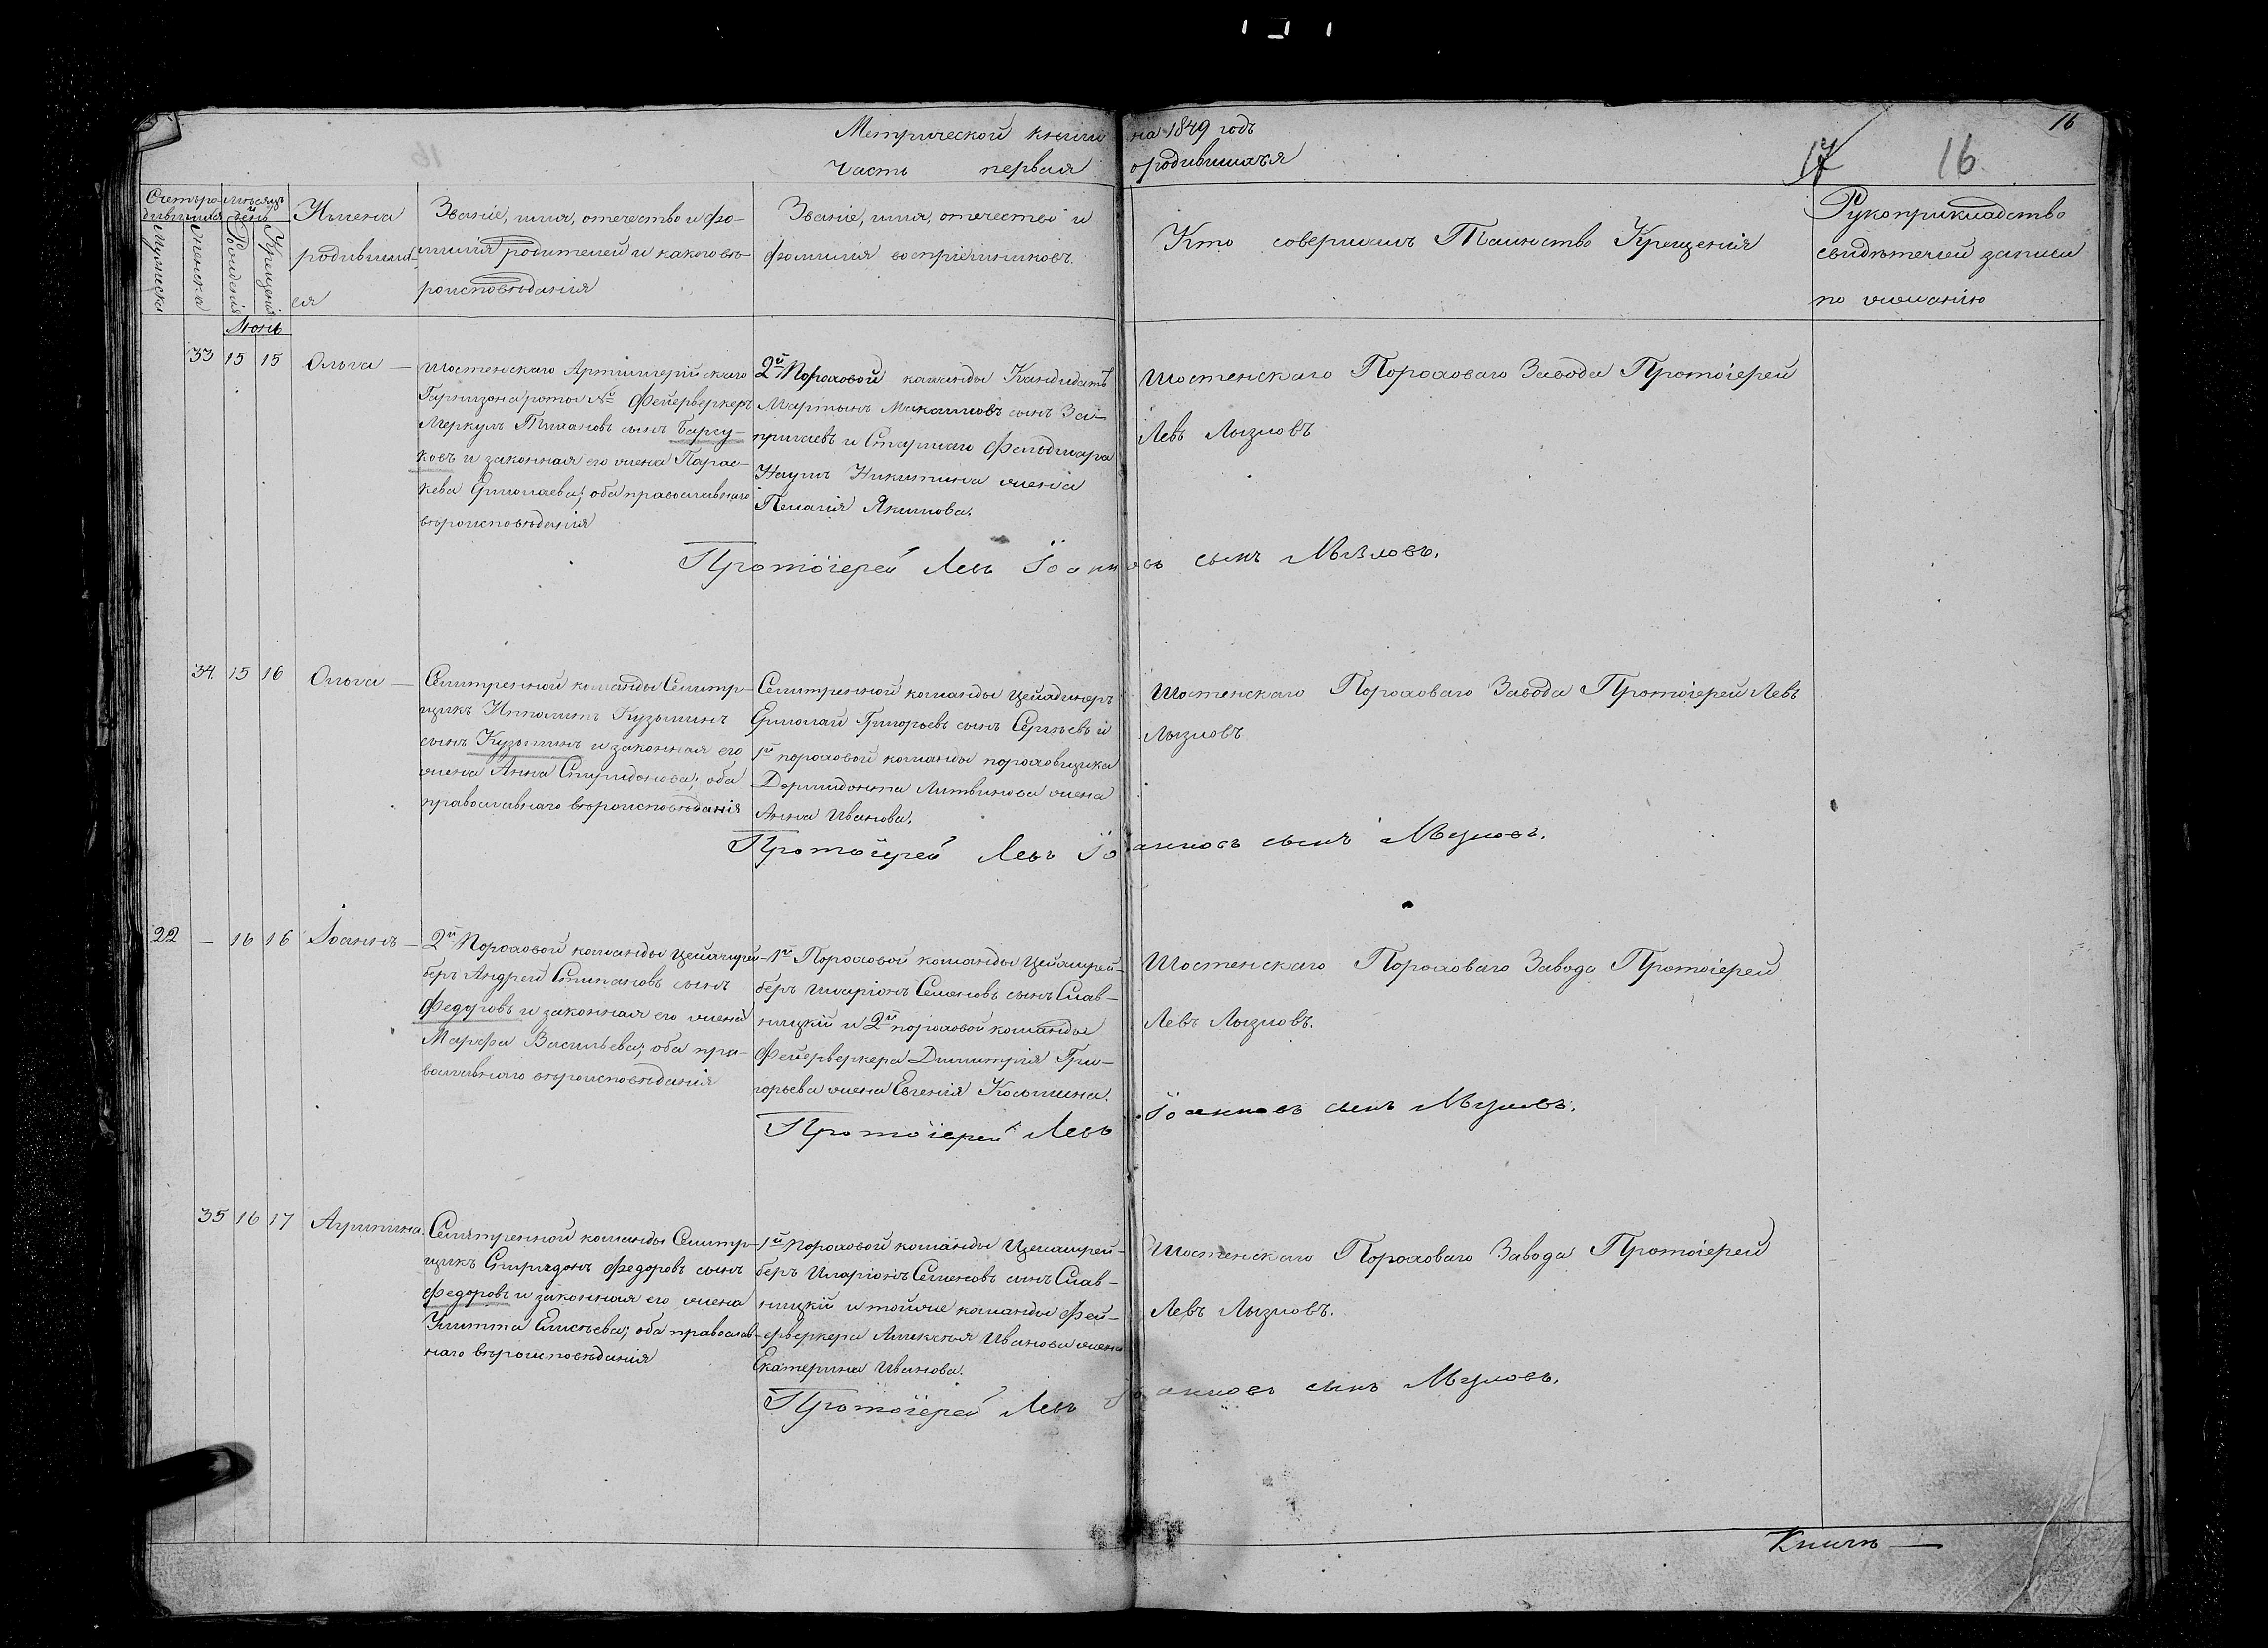 Метрической книги на 1849 годъ
часть первая о родившихся
16
17 16
Счетъ ро-
дившихся
Мужеска
Женска
Мѣсяцъ
день
Рожденія
Крещенія
Имена
родивших-
ся
Званіе, имя, отечество и фа-
милія родителей и какого вѣ-
роисповѣданія
Званіе, имя, отечество и
фамилія воспріемниковъ.
Кто совершалъ Таинство Крещенія
Рукоприкладство
свидѣтелей записи
по желанію
Іюнь
33 15 15 Ольга —
Шостенскаго Артиллерійскаго
Гарнизона роты № Фейерверкеръ
Меркулъ Тихановъ сынъ Барсу-
ковъ и законная его жена Парас-
кева Ермолаева; оба православнаго
вѣроисповѣданія
2й Пороховой команды Кандидатъ
Мартынъ Максимовъ сынъ
и Старшаго
Наума Никитина жена
Пелагія Якимова.
Шостенскаго Пороховаго Завода Протоіерей
Левъ Лызловъ
Протоіерей Левъ Іоанновъ сынъ Лызловъ.
34 15 16 Ольга —
Селитренной команды Селитр-
щикъ Ипполитъ Кузьминъ
сынъ Кузьминъ и законная его
жена Анна Спиридонова; оба
православнаго вѣроисповѣданія
Селитренной команды Цейхдинеръ
Ермолай Григорьевъ сынъ Сергѣевъ и
1й пороховой команды пороховщика
Дормидонта Литвинова жена
Анна Иванова.
Шостенскаго Пороховаго Завода Протоіерей Левъ
Лызловъ
Протоіерей Левъ Іоанновъ сынъ Лызловъ.
22 — 16 16 Іоаннъ —
2й Пороховой команды Цейхшрей-
беръ Андрей Стипановъ сынъ
Федоровъ и законная его жена
Марфа Васильева; оба пра-
вославнаго вѣроисповѣданія
1й Пороховой команды Цейхшрей-
беръ Иларіонъ Семеновъ сынъ Слав-
ницкій и 2й пороховой команды
Фейерверкера Димитрія Гри-
горьева жена Евгенія Козьмина.
Шостенскаго Пороховаго Завода Протоіерей
Левъ Лызловъ.
Протоіерей Левъ Іоанновъ сынъ Лызловъ.
35 16 17 Агрипина.
Селитренной команды Селитр-
щикъ Спиридонъ Федоровъ сынъ
Федоровъ и законная его жена
Улитта Елисѣева; оба православ-
наго вѣроисповѣданія
1й пороховой команды Цейхшрей-
беръ Иларіонъ Семеновъ сынъ Слав-
ницкій и тойже команды Фей-
ерверкера Алексѣя Иванова жена
Екатерина Иванова.
Шостенскаго Пороховаго Завода Протоіерей
Левъ Лызловъ.
Протоіерей Левъ Іоанновъ сынъ Лызловъ.
Книгѣ —